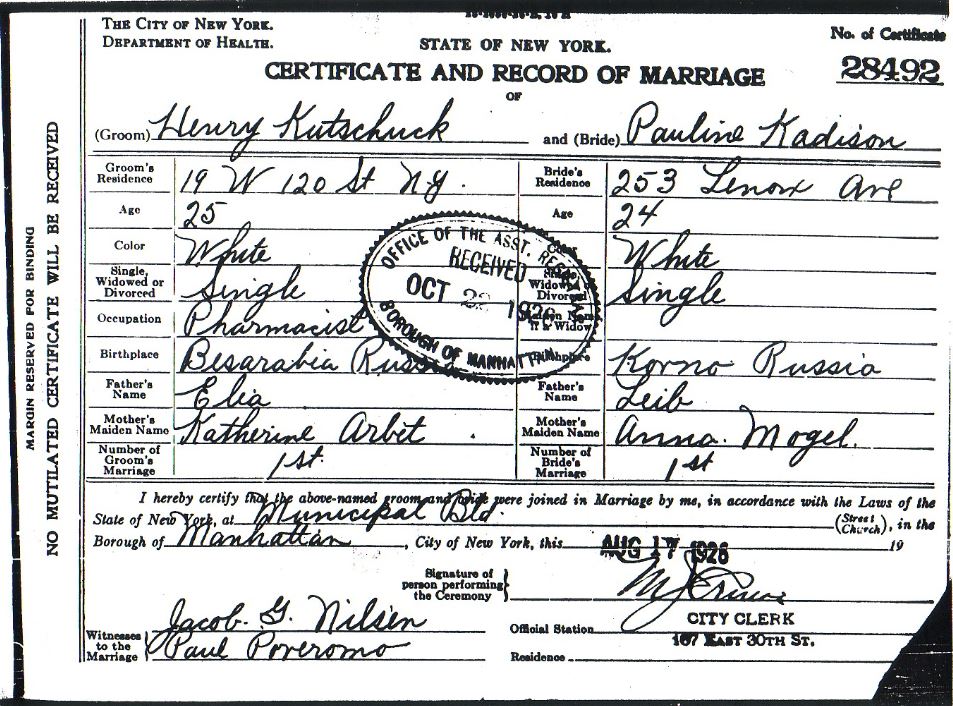 THE CITY OF NEW YORK.
DEPARTMENT OF HEALTH.
STATE OF NEW YORK.
No. of Certificate
28492
CERTIFICATE AND RECORD OF MARRIAGE
OF
(Groom) Henry Kutschuck and (Bride) Pauline Kadison
Groom's Residence 19 W 120 St N.Y. Bride's Residence 253 Lenox Ave
Age 25 Age 24
Color White Color White
Single, Widowed or Divorced Single Single, Widowed or Divorced Single
Occupation Pharmacist Maiden Name if a Widow
Birthplace Besarabia Russia Birthplace Kovno Russia
Father's Name Elia Father's Name Leib
Mother's Maiden Name Katherine Arbit Mother's Maiden Name Anna. Mogel.
Number of Groom's Marriage 1st. Number of Bride's Marriage 1st
OFFICE OF THE ASST. 
RECEIVED
OCT
BOROUGH OF MANHATTAN
I hereby certify that the above-named groom and bride were joined in Marriage by me, in accordance with the Laws of the
State of New York, at Municipal Bld. (Street Church), in the
Borough of Manhattan, City of New York, this AUG 17 1926 19
Signature of person performing the Ceremony
CITY CLERK
Official Station
167 EAST 30TH ST.
Residence
Witnesses to the Marriage
Jacob. G. Nilsen
Paul Poveromo
MARGIN RESERVED FOR BINDING
NO MUTILATED CERTIFICATE WILL BE RECEIVED